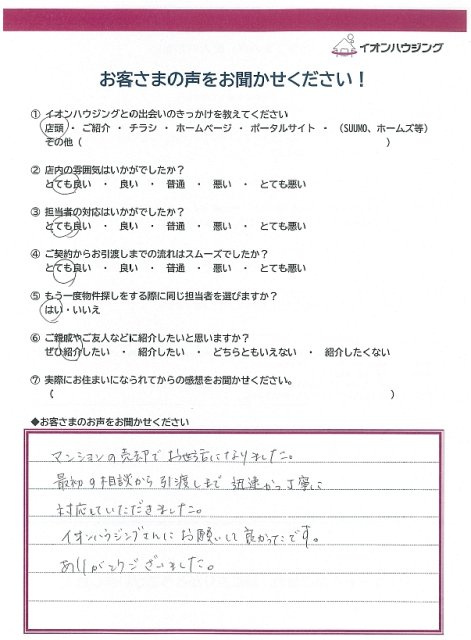 イオンハウジング
お客さまの声をお聞かせください！
① イオンハウジングとの出会いのきっかけを教えてください
店頭 ・ ご紹介 ・ チラシ ・ ホームページ ・ ポータルサイト ・ （SUUMO、ホームズ等）
その他（　）
② 店内の雰囲気はいかがでしたか？
とても良い ・ 良い ・ 普通 ・ 悪い ・ とても悪い
③ 担当者の対応はいかがでしたか？
とても良い ・ 良い ・ 普通 ・ 悪い ・ とても悪い
④ ご契約からお引渡しまでの流れはスムーズでしたか？
とても良い ・ 良い ・ 普通 ・ 悪い ・ とても悪い
⑤ もう一度物件探しをする際に同じ担当者を選びますか？
はい・いいえ
⑥ ご親戚やご友人などに紹介したいと思いますか？
ぜひ紹介したい ・ 紹介したい ・ どちらともいえない ・ 紹介したくない
⑦ 実際にお住まいになられてからの感想をお聞かせください。
（　）
◆お客さまのお声をお聞かせください
マンションの売却でお世話になりました。
最初の相談から引渡しまで迅速かつ丁寧に
対応していただきました。
イオンハウジングさんにお願いして良かったです。
ありがとうございました。